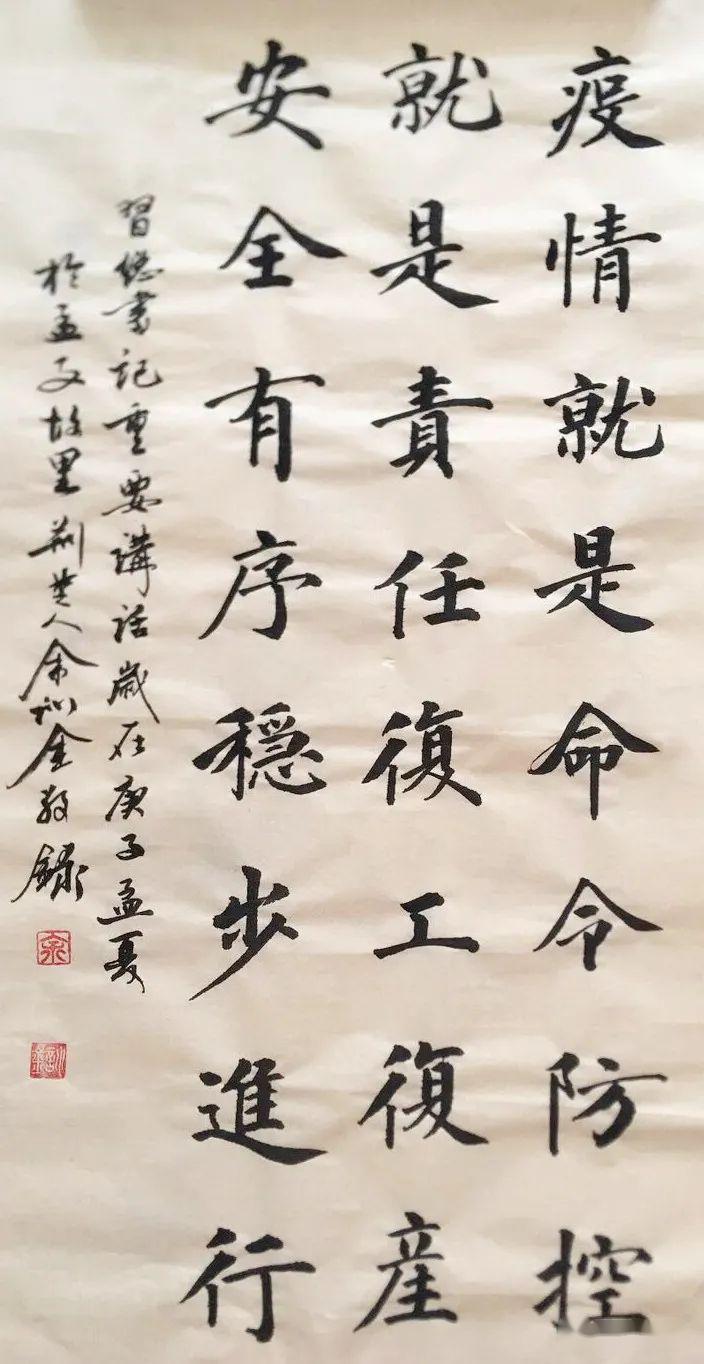 疫情就是命令防控
就是責任復工復產
安全有序穩步進行
習總書記重要講話歲在庚子孟夏
於孟文故里荊楚人余訓金敬錄